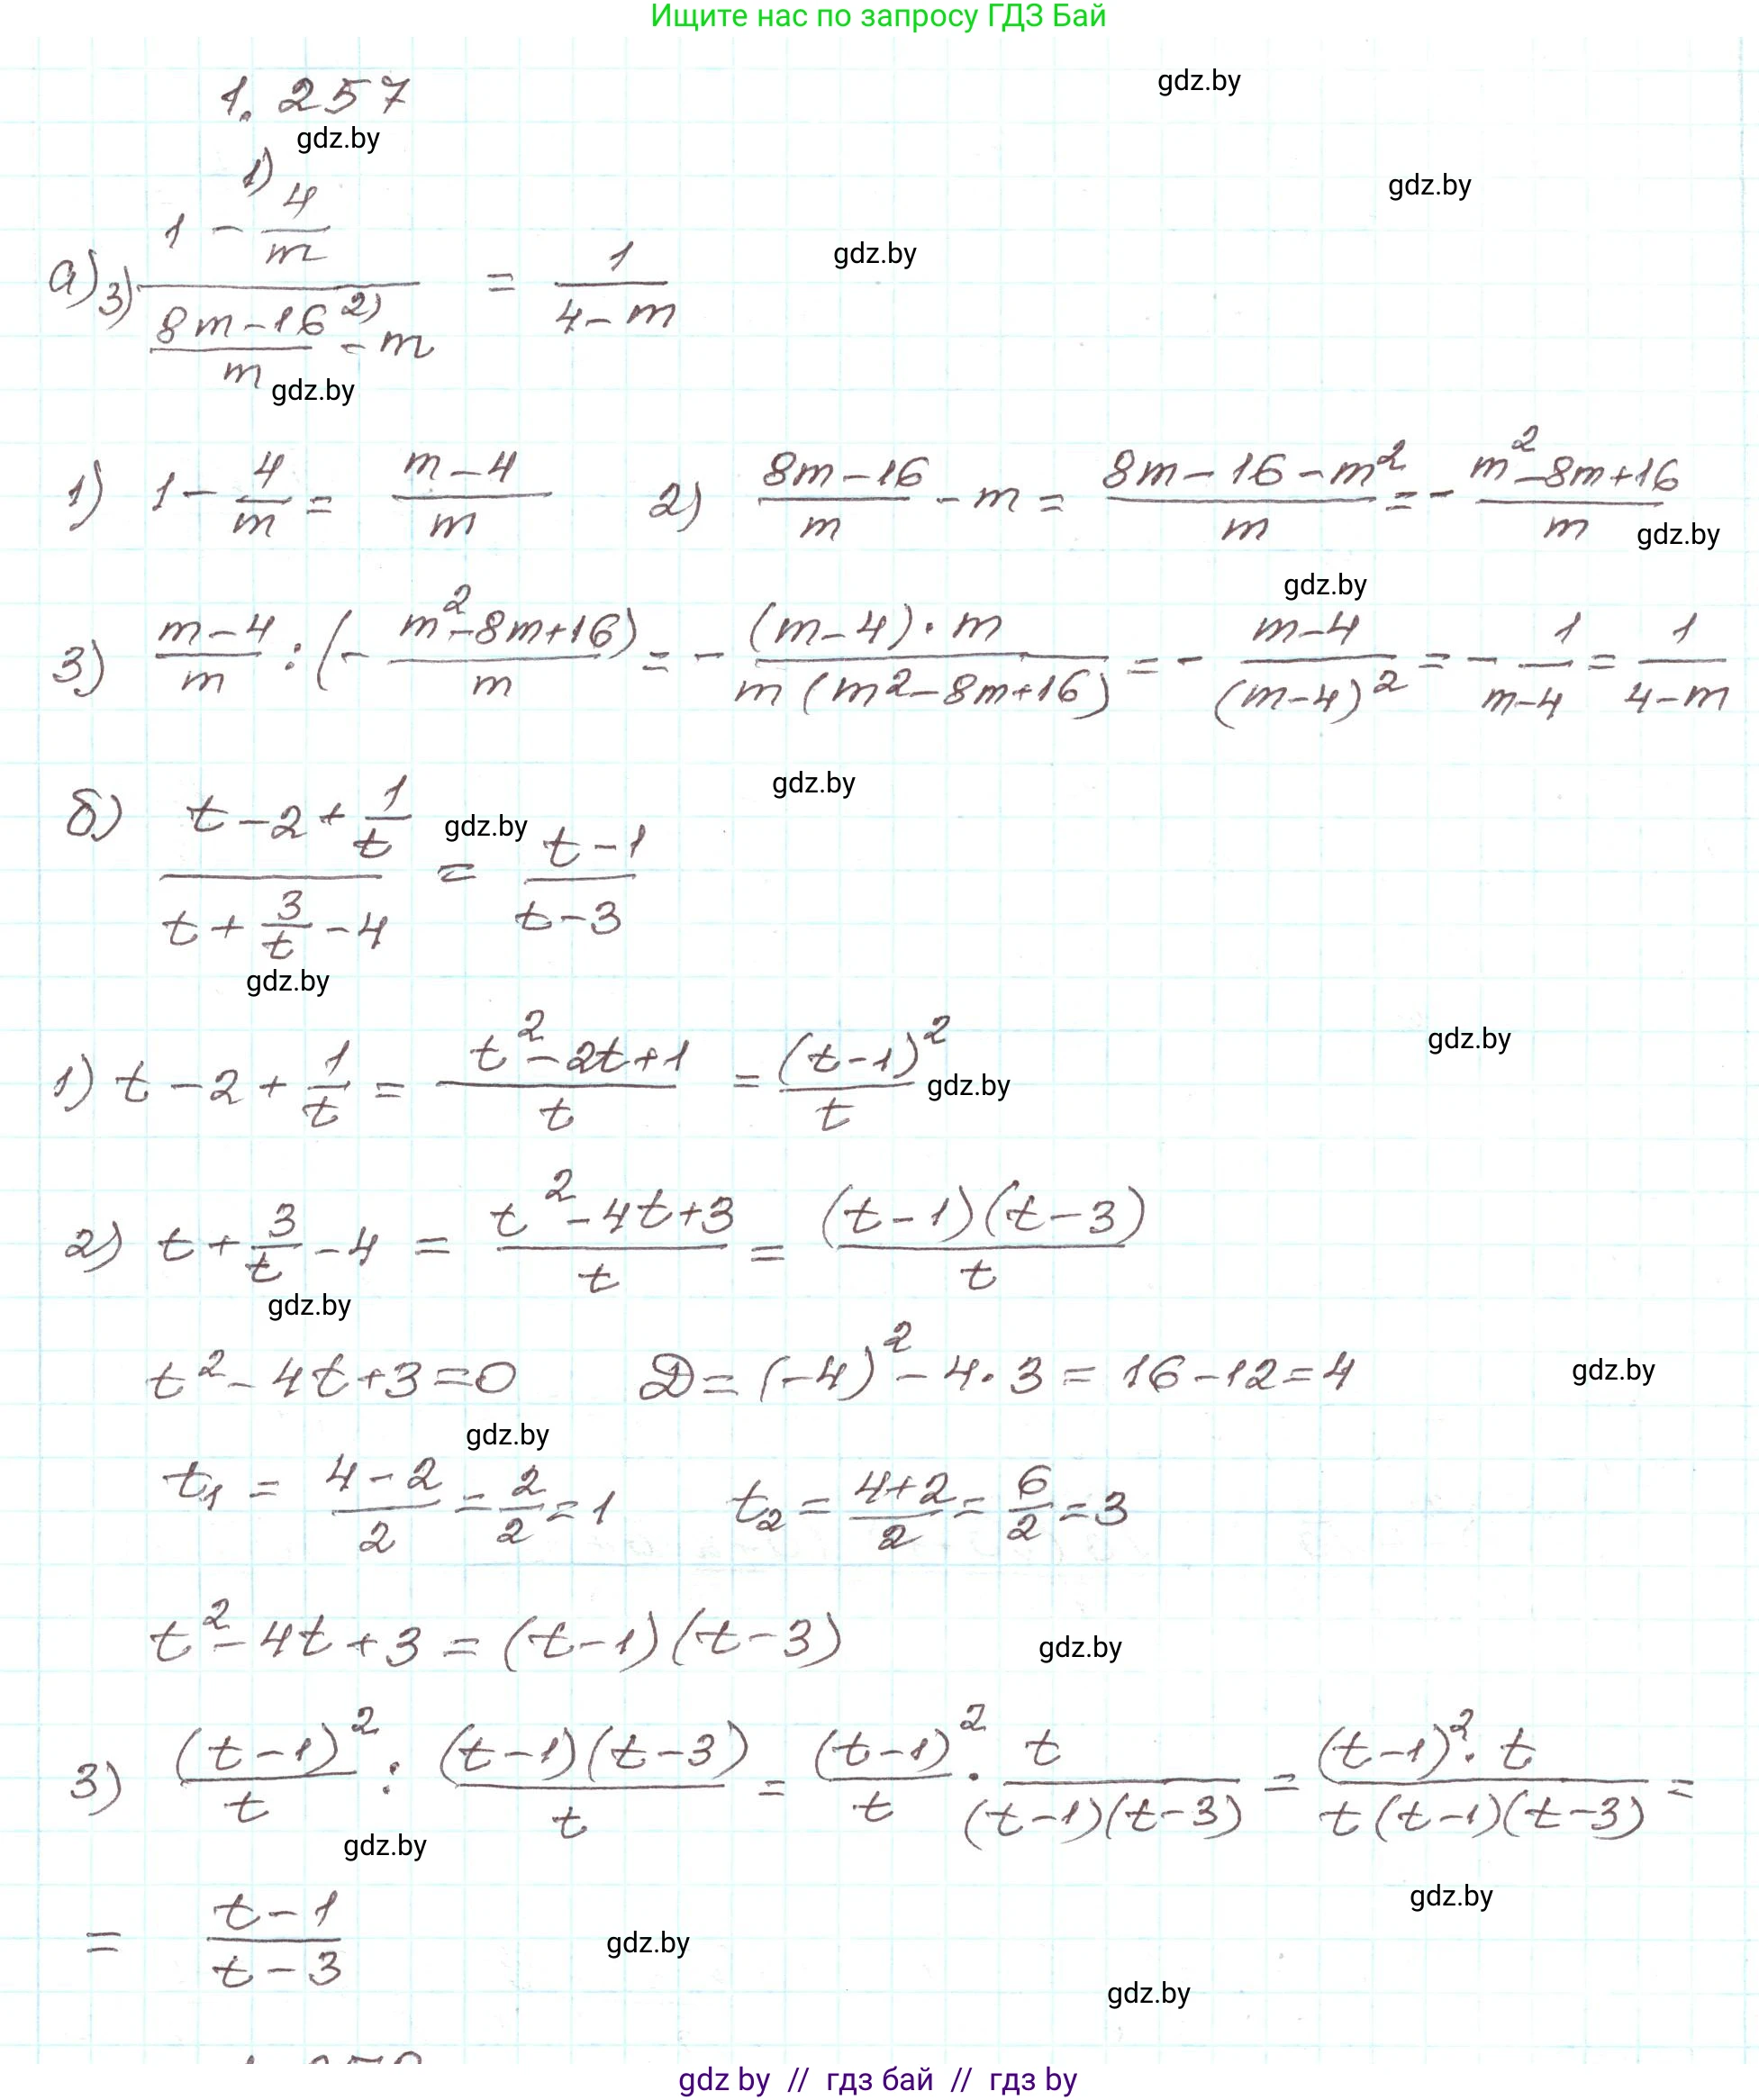 Ищите нас по запросу ГДЗ Бай
gdz.by
1.257
gdz.by
gdz.by
а) 3) (1 - 4/m) / ((8m-16)/m - m) = 1/(4-m)
1) 2)
gdz.by
gdz.by
1) 1 - 4/m = (m-4)/m 2) (8m-16)/m - m = (8m-16-m²)/m = - (m²-8m+16)/m
gdz.by
gdz.by
3) (m-4)/m : (- (m²-8m+16)/m) = - ((m-4)·m)/(m(m²-8m+16)) = - (m-4)/(m-4)² = - 1/(m-4) = 1/(4-m)
gdz.by
б) (t-2+1/t) / (t+3/t-4) = (t-1)/(t-3)
gdz.by
gdz.by
gdz.by
1) t-2+1/t = (t²-2t+1)/t = (t-1)²/t
gdz.by
2) t+3/t-4 = (t²-4t+3)/t = ((t-1)(t-3))/t
gdz.by
t²-4t+3=0 D=(-4)²-4·3=16-12=4
gdz.by
gdz.by
t₁ = (4-2)/2 = 2/2 = 1 t₂ = (4+2)/2 = 6/2 = 3
t²-4t+3=(t-1)(t-3)
gdz.by
3) (t-1)²/t : ((t-1)(t-3))/t = (t-1)²/t · t/((t-1)(t-3)) = ((t-1)²·t)/(t(t-1)(t-3)) =
gdz.by
gdz.by
= (t-1)/(t-3)
gdz.by
gdz.by
gdz by // гдз бай // gdz by